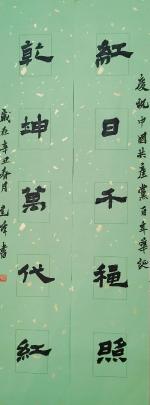 慶祝中國共產黨百年華誕
紅日千秏照
乾坤萬代紅
歲在辛丑春月
書